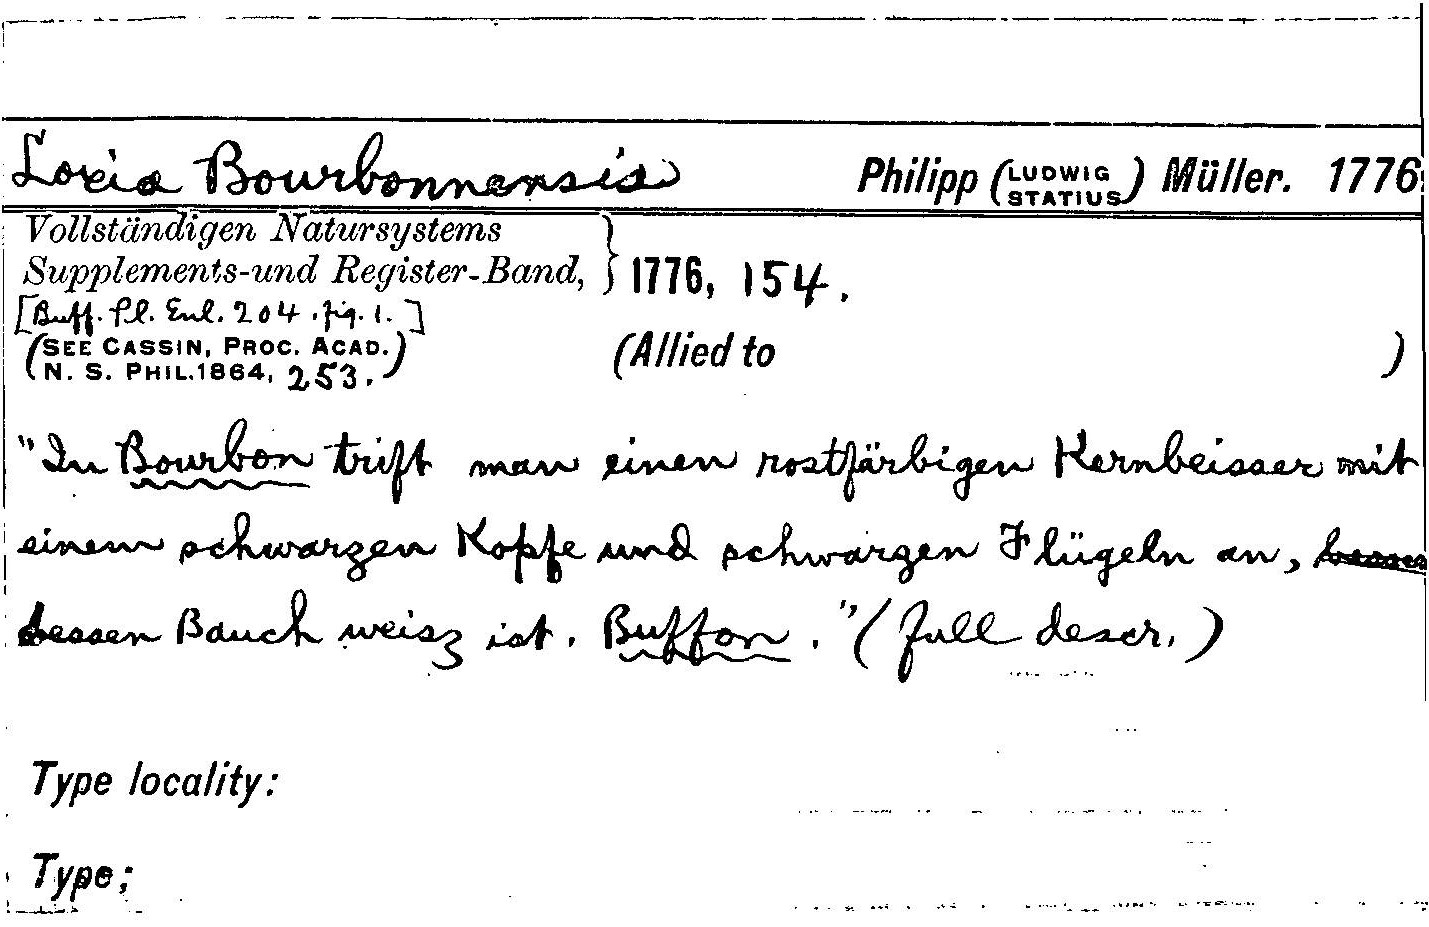 Loxia Bourbonnensis Philipp (LUDWIG STATIUS) Müller. 1776
Vollständigen Natursystems
Supplements-und Register-Band, } 1776, 154.
[Buff. Pl. Enl. 204. fig. 1.]
(SEE CASSIN, PROC. ACAD.
N. S. PHIL. 1864, 253.)
(Allied to )
"In Bourbon trift man einen rostfärbigen Kernbeisser mit
einem schwarzen Kopfe und schwarzen Flügeln an,
dessen Bauch weisz ist. Buffon." (full descr.)
Type locality:
Type;